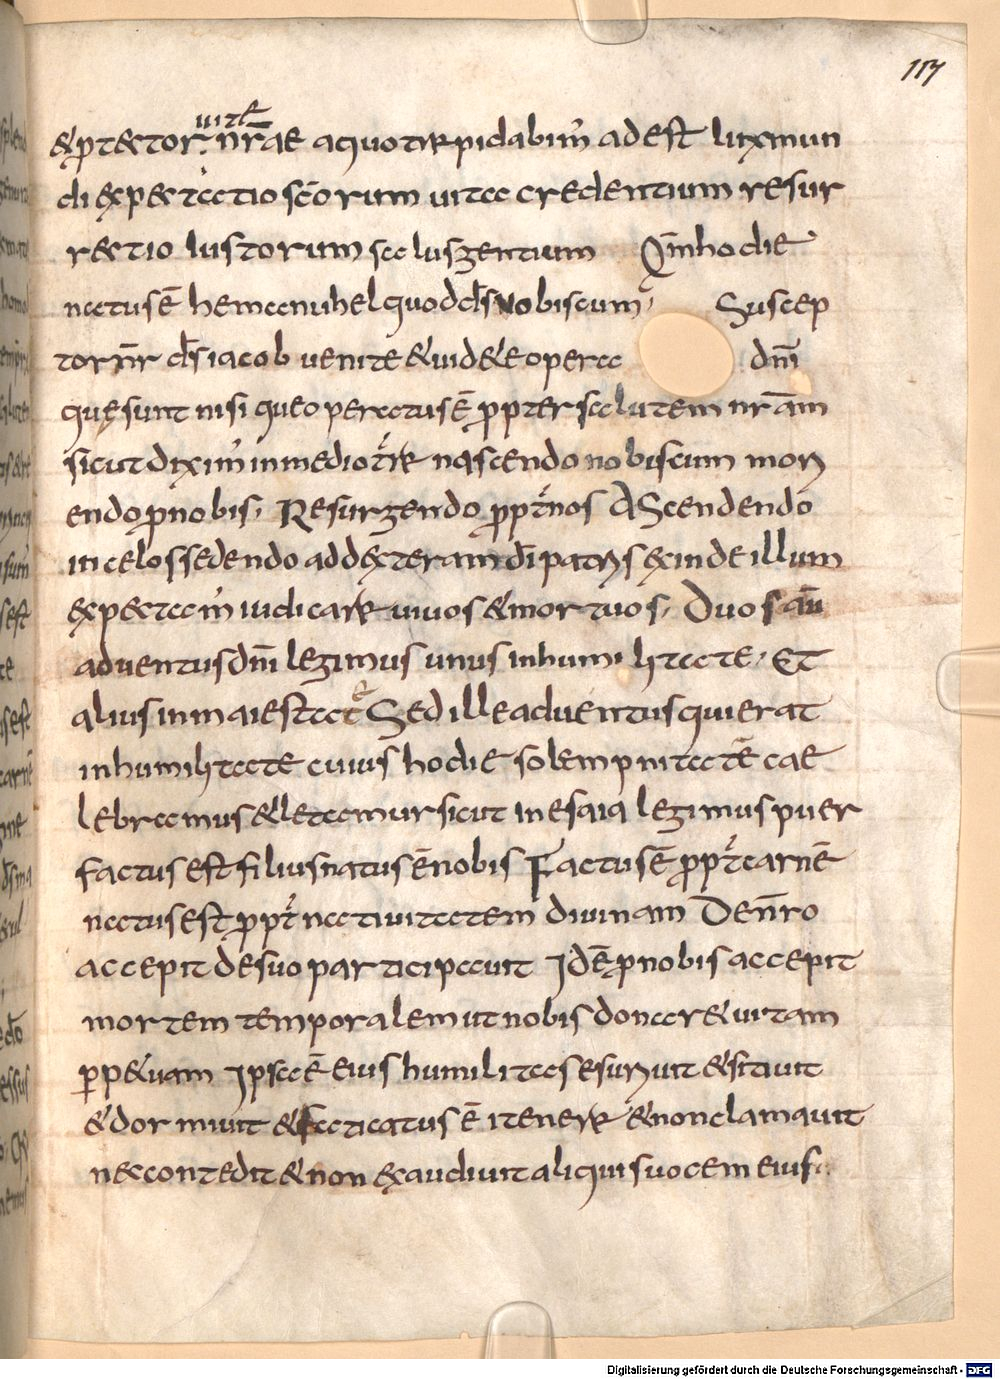 117
uitę
& ptector nr̄ae aquo trepidabim' adest lux mun
di expectatio sc̄orum uita credentium resur
rectio iustorum salus gentium Qm̄ hodie
natus ē hemanuhel quod d̄s nobiscum. Suscep
tor nr̄ d̄s iacob uenite & uid&e opera dn̄i
quę sunt nisi que operatus ē ppter salutem nr̄am
sicut dixim' in medio t̄re nascendo nobiscum mori
endo p nobis. Resurgendo ppt̄ nos Ascendendo
in celos sedendo ad dexteram d̄i patris exinde illum
expectam' iudicare uiuos & mortuos. Duos aū
aduentus dn̄i legimus unus in humilitate. Et
alius in maiestate Sed ille aduentus qui erat
in humilitate cuius hodie solempnitatē cae
lebramus & letamur sicut in esaia legimus puer
factus est filius natus ē nobis Factus ē ppt̄ carnē
natus est ppt̄ natiuitatem diuinam De nr̄o
accepit de suo participauit Idē p nobis accepit
mortem temporalem ut nobis donar& uitam
pp&uam Ipsa ē eius humilitas esuriuit & sitiuit
& dormiuit & faticatus ē itenere & non clamauit
nec contedit & non exaudiuit aliquis uocem eius.
Digitalisierung gefördert durch die Deutsche Forschungsgemeinschaft - DFG